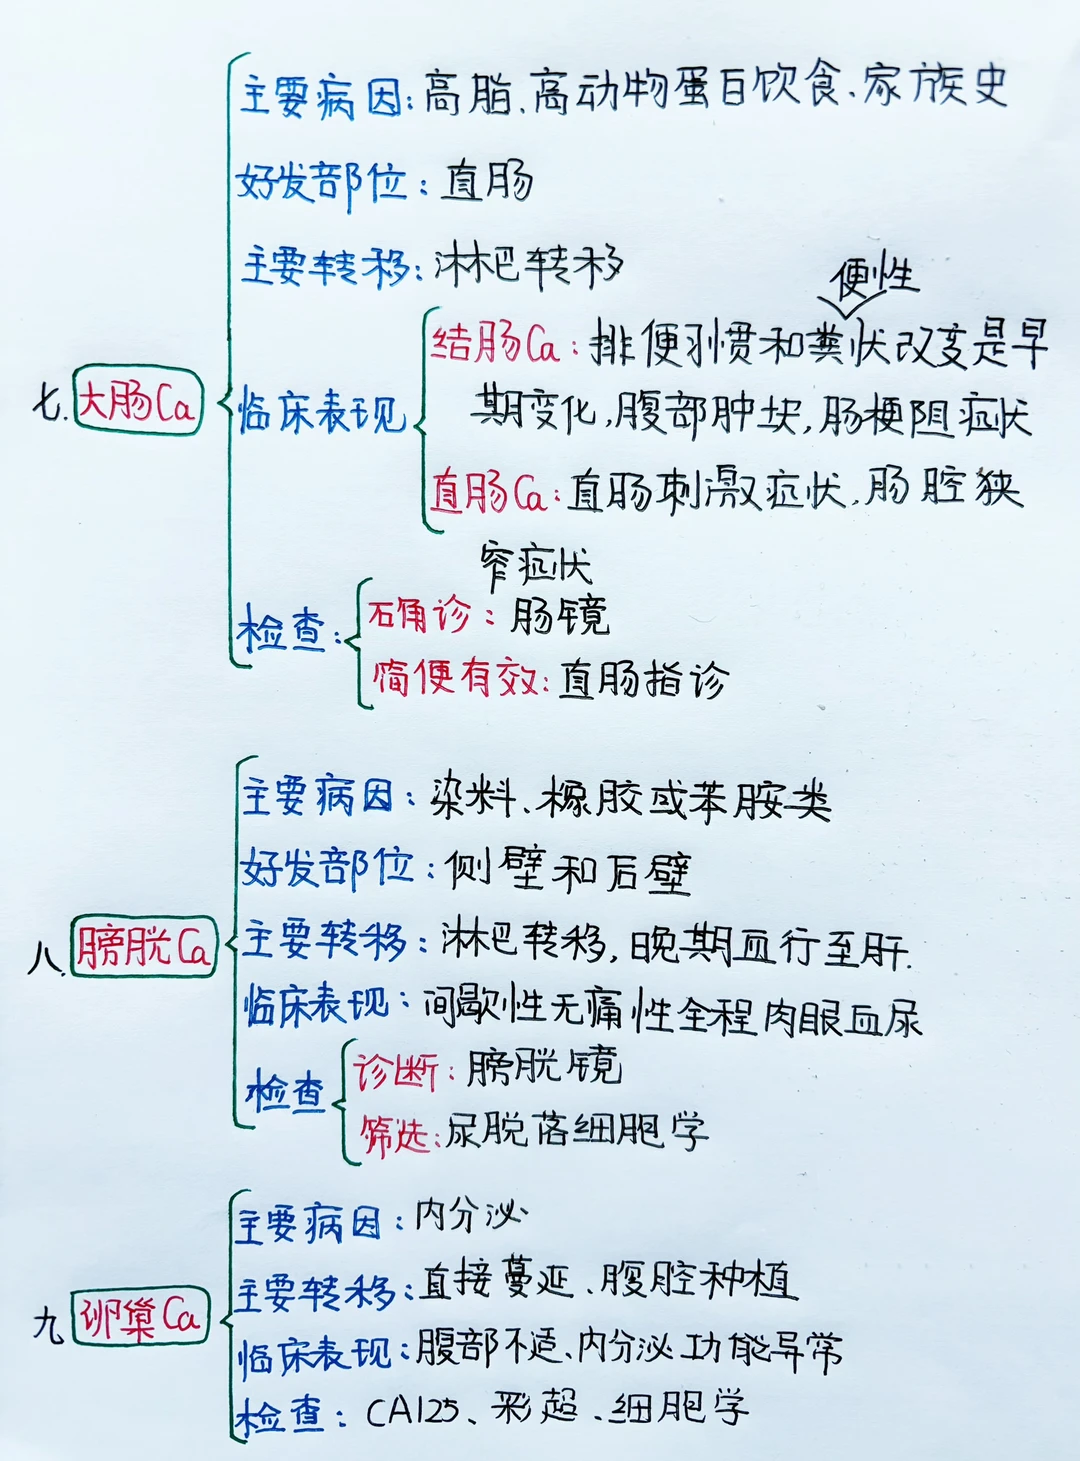 主要病因：高脂、高动物蛋白饮食、家族史
好发部位：直肠
主要转移：淋巴转移
便性
结肠Ca：排便习惯和粪状改变是早
七.大肠Ca
临床表现
期变化,腹部肿块,肠梗阻症状
直肠Ca：直肠刺激症状,肠腔狭
窄症状
检查：
确诊：肠镜
简便有效：直肠指诊
主要病因：染料、橡胶或苯胺类
好发部位：侧壁和后壁
主要转移：淋巴转移,晚期血行至肝.
八.膀胱Ca
临床表现：间歇性无痛性全程肉眼血尿
检查
诊断：膀胱镜
筛选：尿脱落细胞学
主要病因：内分泌
主要转移：直接蔓延、腹腔种植
九 卵巢Ca
临床表现：腹部不适、内分泌功能异常
检查：CA125、彩超、细胞学